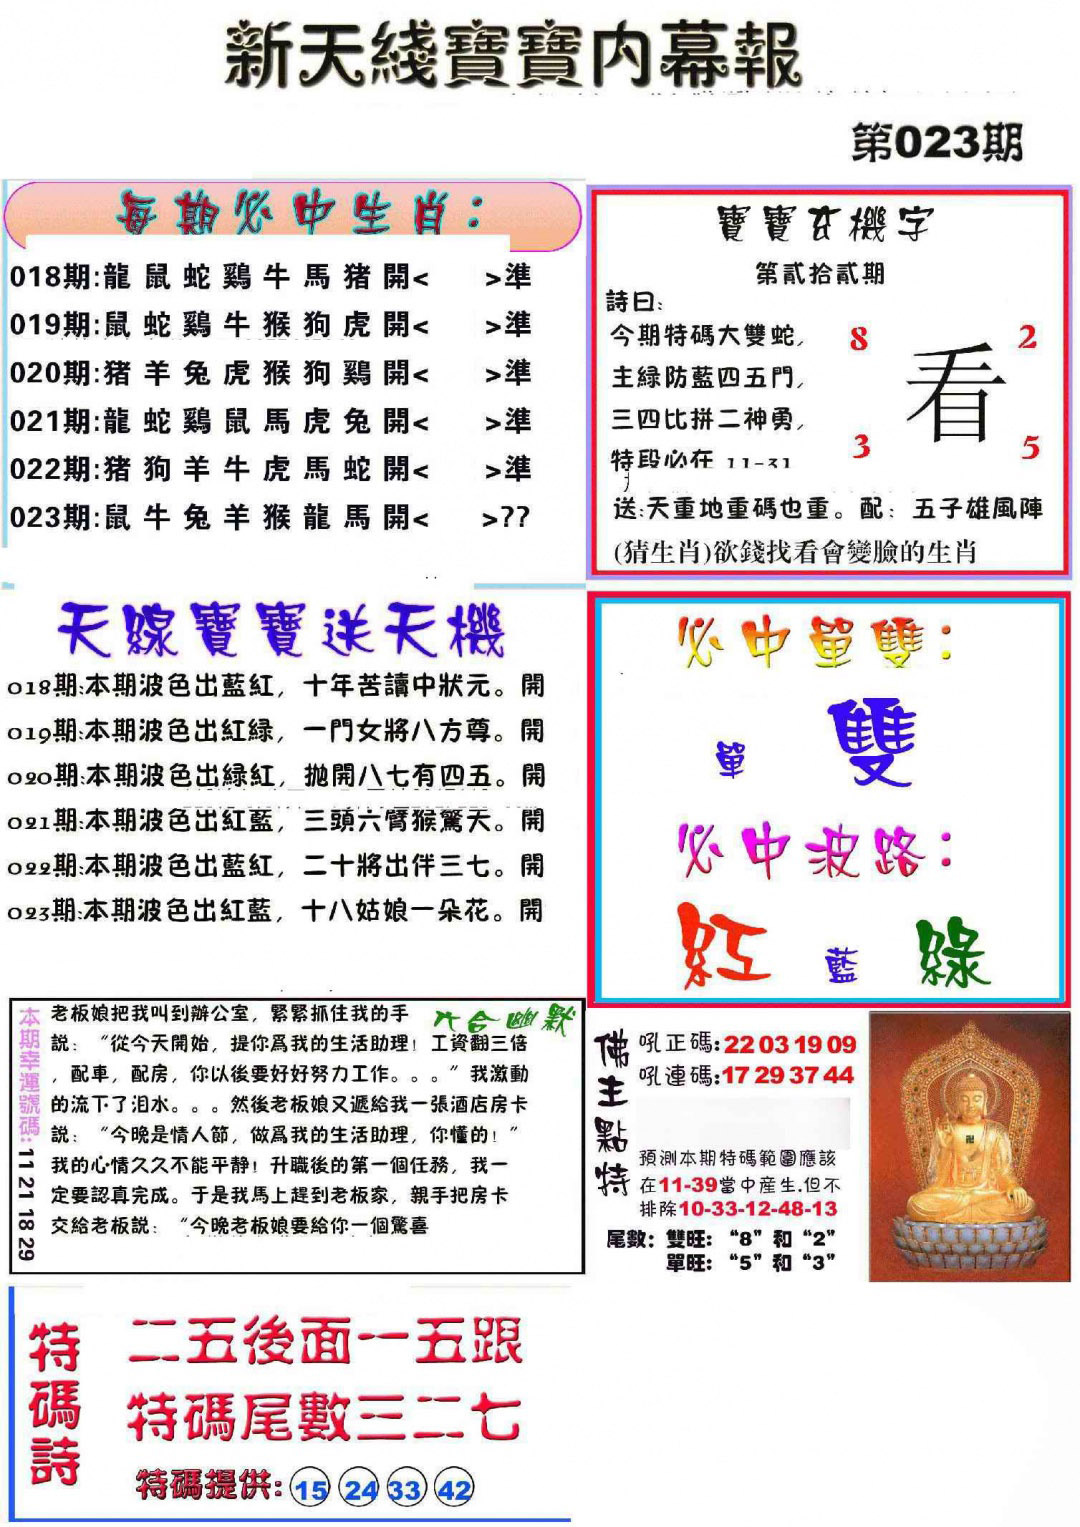 新天綫寶寶内幕報
第023期
每期必中生肖：
018期:龍 鼠 蛇 鷄 牛 馬 猪 開<　>準
019期:鼠 蛇 鷄 牛 猴 狗 虎 開<　>準
020期:猪 羊 兔 虎 猴 狗 鷄 開<　>準
021期:龍 蛇 鷄 鼠 馬 虎 兔 開<　>準
022期:猪 狗 羊 牛 虎 馬 蛇 開<　>準
023期:鼠 牛 兔 羊 猴 龍 馬 開<　>??
寶寶玄機字
第貳拾貳期
詩曰:
今期特碼大雙蛇,
主緑防藍四五門,
三四比拼二神勇,
特段必在 11-31
8 2
看
3 5
送:天重地重碼也重。配：五子雄風陣
(猜生肖)欲錢找看會變臉的生肖
天線寶寶送天機
018期:本期波色出藍紅，十年苦讀中狀元。開
019期:本期波色出紅緑，一門女將八方尊。開
020期:本期波色出緑紅，抛開八七有四五。開
021期:本期波色出紅藍，三頭六臂猴驚天。開
022期:本期波色出藍紅，二十將出伴三七。開
023期:本期波色出紅藍，十八姑娘一朵花。開
必中單雙：
單 雙
必中波路：
紅 藍 綠
本期幸運號碼: 11 21 18 29
六合幽默
老板娘把我叫到辦公室，緊緊抓住我的手
説：“從今天開始，提你爲我的生活助理！工資翻三倍
，配車，配房，你以後要好好努力工作。。。”我激動
的流下了泪水。。。然後老板娘又遞給我一張酒店房卡
説：“今晚是情人節，做爲我的生活助理，你懂的！”
我的心情久久不能平静！升職後的第一個任務，我一
定要認真完成。于是我馬上趕到老板家，親手把房卡
交給老板説：“今晚老板娘要給你一個驚喜
佛主點特
吼正碼:22 03 19 09
吼連碼:17 29 37 44
預測本期特碼範圍應該
在11-39當中産生.但不
排除10-33-12-48-13
尾數：雙旺：“8”和“2”
單旺：“5”和“3”
特碼詩
二五後面一五跟
特碼尾數三二七
特碼提供: 15 24 33 42